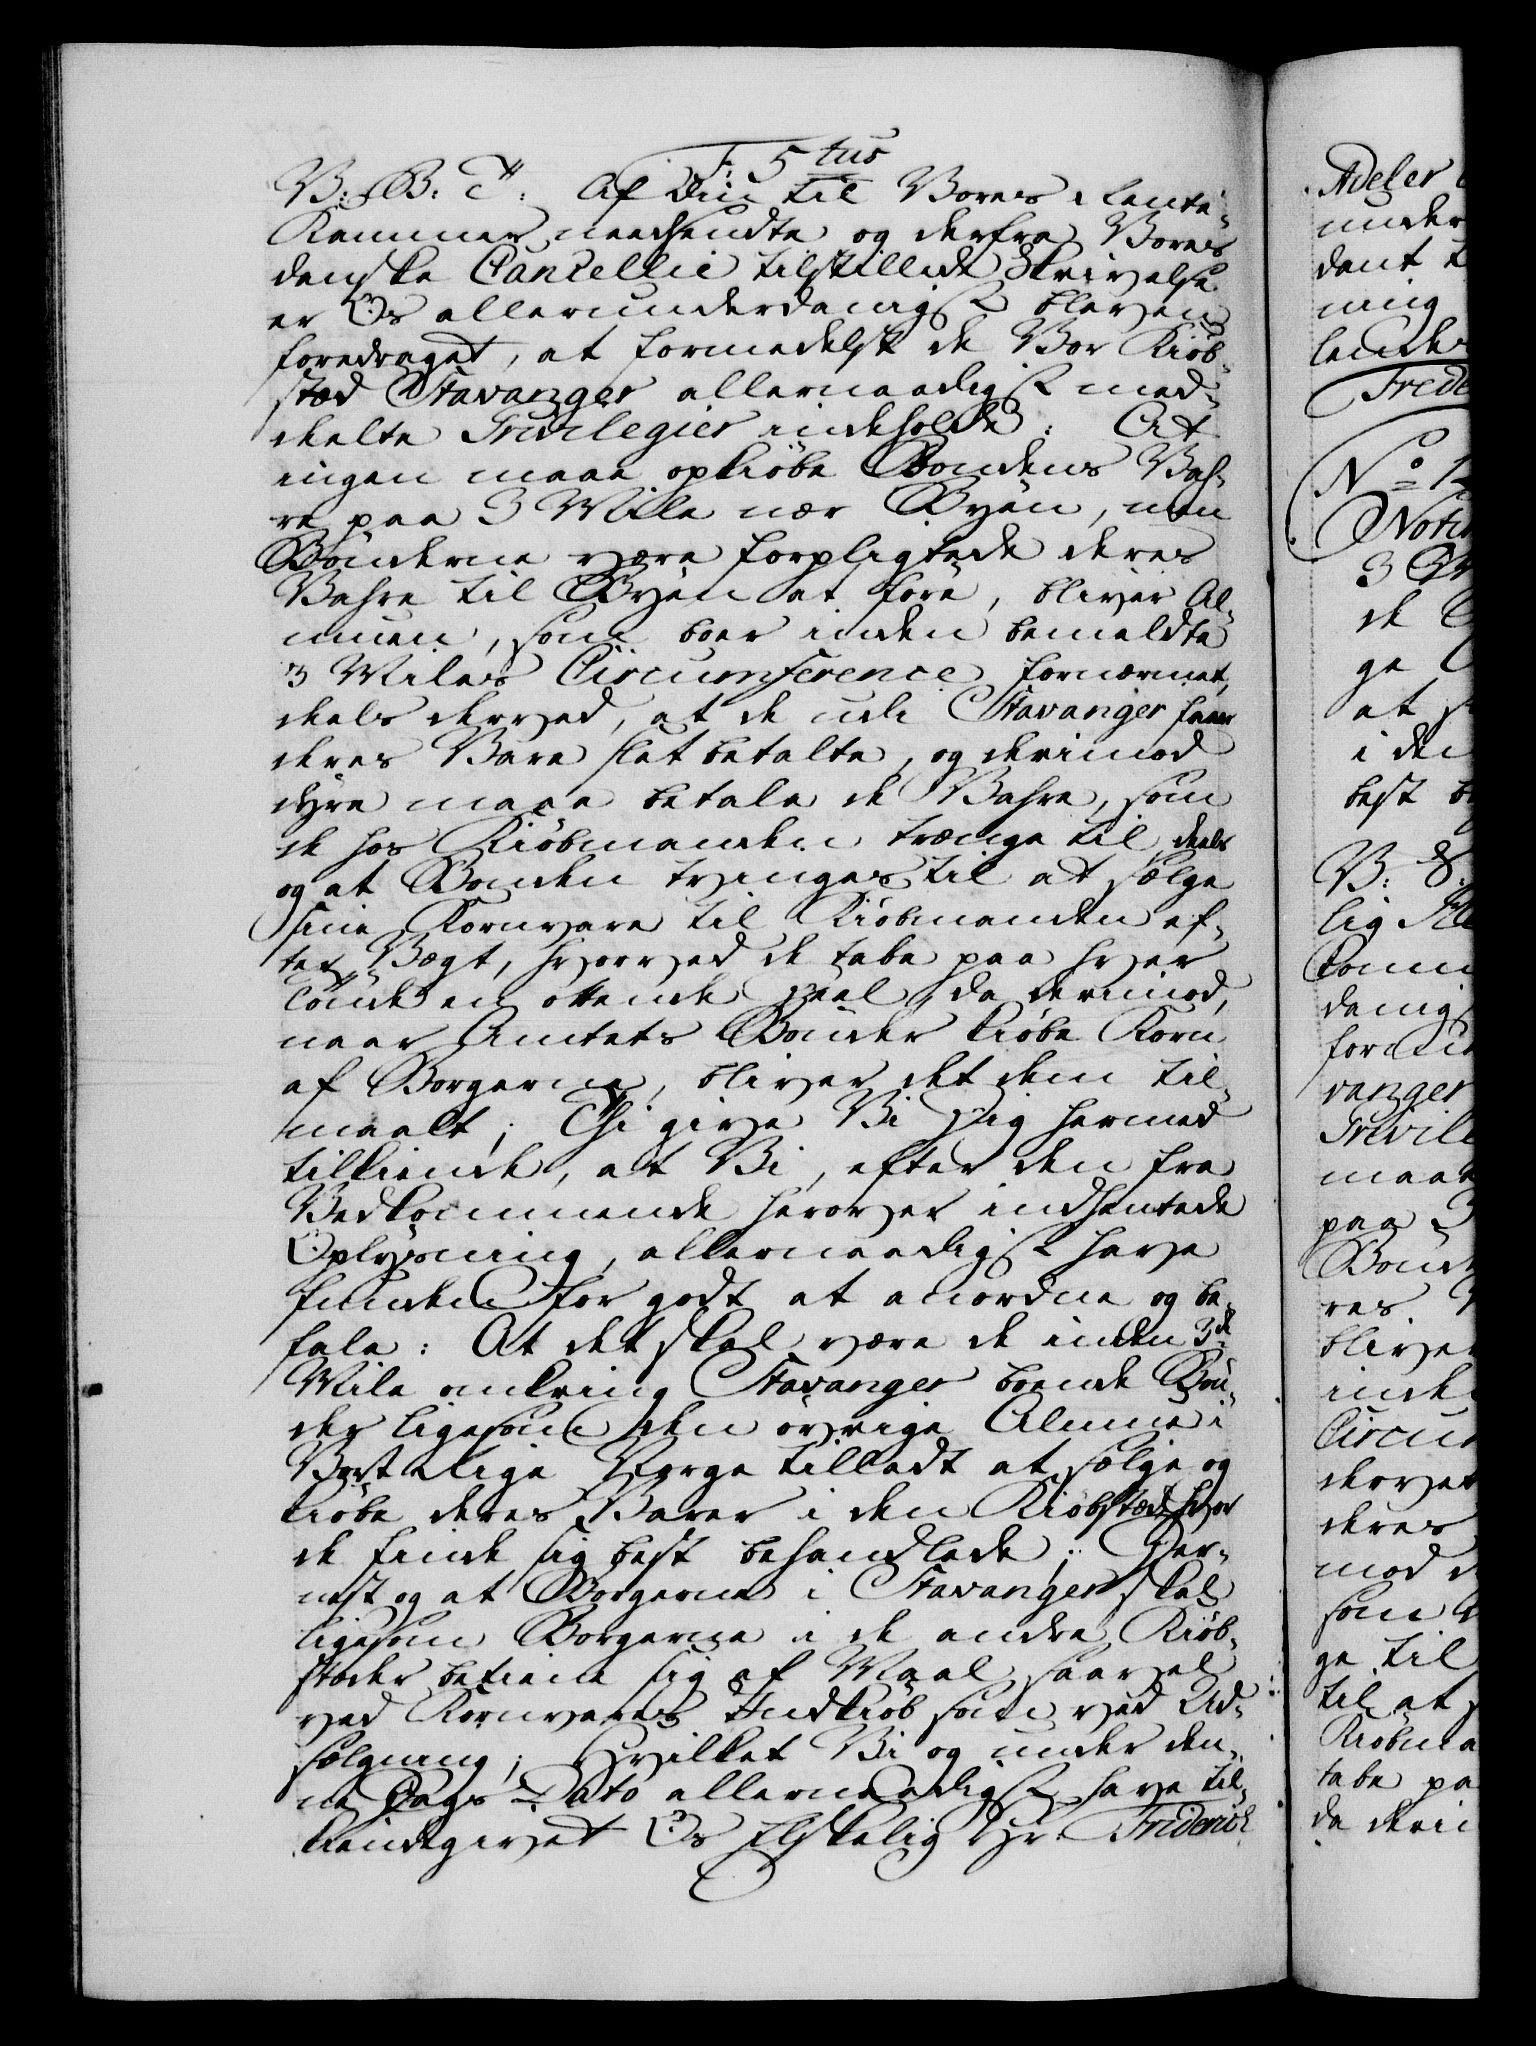 F: 5tus
V: B: T: Af din til Vores Rente-
Kammer neersendte og derfra Vores
danske Cancellie tilstillede Skrivelse
er Os allerunderdanigst bleven
foredraget, at formedelst de Vor Kiöb-
stæd Stavanger allernaadigst med-
deelte Privilegier indeholde: At
ingen maae opkiöbe Bondens Vah-
re paa 3 Mile nær Byen, men
Bönderne være forpligtede deres
Vahre til Byen at före, bliver Al-
muen, som boer inden bemeldte
3 Miles Circumference fornærmet,
deels derved, at de udi Stavanger faaer
deres Vare slet betalte, og derimod
dyre maae betale de Vahre, som
de hos Kiöbmanden trænge til, deels
og at Bonden tvinges til at sælge
sine Kornvare til Kiöbmanden ef-
ter Vægt, hvorved de tabe paa hver
Tönde en ottende Deel, da derimod,
naar Amtets Bönder kiöbe Korn
af Borgerne, bliver det dem til-
maalt; Thi give Vi Dig hermed
tilkiende, at Vi, efter den fra
Vedkommende herover indhentede
Oplysning, allernaadigst have
funden for godt at anordne og be-
fale: At det skal være de inden 3de
Mile omkring Stavanger boende Bön-
der ligesom den övrige Almue i
Vort Rige Norge tilladt at sælge og
kiöbe deres Varer i den Kiöbstæd, hvor
de finde sig best behandlede; Der-
næst og at Borgerne i Stavanger skal
ligesom Borgerne i de andre Kiöb-
stæder betiene sig af Maal saavel
ved Kornvares Indkiöb som ved Ud-
sælgning; Hvilket Vi og under den-
ne Dags Dato allernaadigst have til-
kiendegivet Os Elskelig Hr. Friderich
Adeler
under
dant
ning
lendes
Frede
No 12
Notit
3
de
ge
at
i den
best
V:
lig
Comm
danigst
formed
vanger
Privile
maae
paa 3
Bönd
res
bliver
inden
Circum
derved
deres
mod d
som
ge til
til at
Kiöbma
tabe pa
da deri